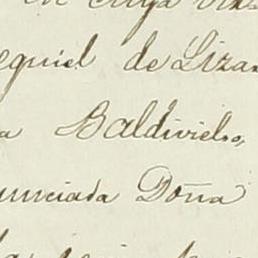 en cuya vir
equiel de Lizar
a Baldivielso,
unciada Doña